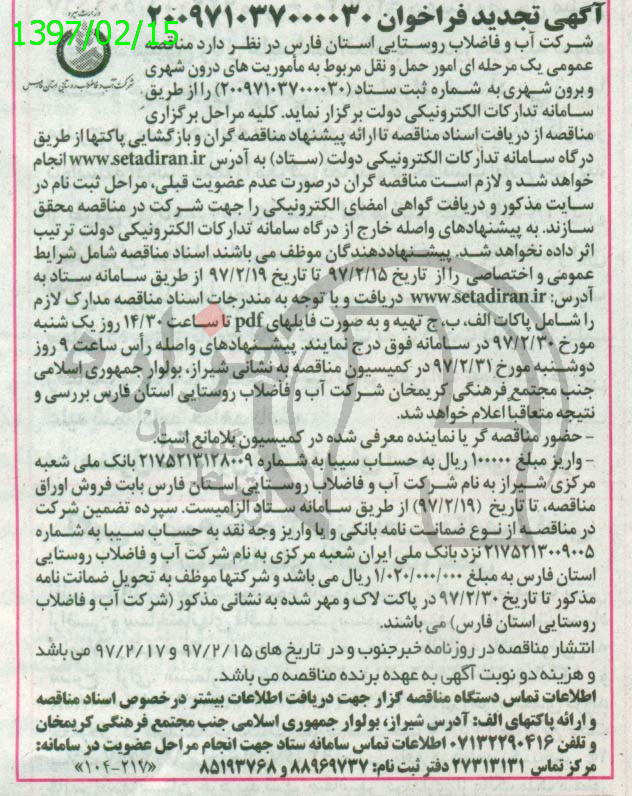 1397/02/15
آگهی تجدید فراخوان ۲۰۰۹۷۱۰۳۷۰۰۰۰۳۰
وزارت نیرو
شرکت آب و فاضلاب روستایی استان فارس
شرکت آب و فاضلاب روستایی استان فارس در نظر دارد مناقصه
عمومی یک مرحله ای امور حمل و نقل مربوط به مأموریت های درون شهری
و برون شهری به شماره ثبت ستاد (۲۰۰۹۷۱۰۳۷۰۰۰۰۳۰) را از طریق
سامانه تدارکات الکترونیکی دولت برگزار نماید. کلیه مراحل برگزاری
مناقصه از دریافت اسناد مناقصه تا ارائه پیشنهاد مناقصه گران و بازگشایی پاکتها از طریق
درگاه سامانه تدارکات الکترونیکی دولت (ستاد) به آدرس www.setadiran.ir انجام
خواهد شد و لازم است مناقصه گران درصورت عدم عضویت قبلی، مراحل ثبت نام در
سایت مذکور و دریافت گواهی امضای الکترونیکی را جهت شرکت در مناقصه محقق
سازند. به پیشنهادهای واصله خارج از درگاه سامانه تدارکات الکترونیکی دولت ترتیب
اثر داده نخواهد شد. پیشنهاددهندگان موظف می باشند اسناد مناقصه شامل شرایط
عمومی و اختصاصی را از تاریخ ۹۷/۲/۱۵ تا تاریخ ۹۷/۲/۱۹ از طریق سامانه ستاد به
آدرس: www.setadiran.ir دریافت و با توجه به مندرجات اسناد مناقصه مدارک لازم
را شامل پاکات الف، ب، ج تهیه و به صورت فایلهای pdf تا ساعت ۱۴/۳۰ روز یک شنبه
مورخ ۹۷/۲/۳۰ در سامانه فوق درج نمایند. پیشنهادهای واصله رأس ساعت ۹ روز
دوشنبه مورخ ۹۷/۲/۳۱ در کمیسیون مناقصه به نشانی شیراز، بولوار جمهوری اسلامی
جنب مجتمع فرهنگی کریمخان شرکت آب و فاضلاب روستایی استان فارس بررسی و
نتیجه متعاقباً اعلام خواهد شد.
- حضور مناقصه گر یا نماینده معرفی شده در کمیسیون بلامانع است.
- واریز مبلغ ۱۰۰۰۰۰ ریال به حساب سیبا به شماره ۲۱۷۵۲۱۳۱۲۸۰۰۹ بانک ملی شعبه
مرکزی شیراز به نام شرکت آب و فاضلاب روستایی استان فارس بابت فروش اوراق
مناقصه، تا تاریخ (۹۷/۲/۱۹) از طریق سامانه ستاد الزامیست. سپرده تضمین شرکت
در مناقصه از نوع ضمانت نامه بانکی و یا واریز وجه نقد به حساب سیبا به شماره
۲۱۷۵۲۱۳۰۰۹۰۰۵ نزد بانک ملی ایران شعبه مرکزی به نام شرکت آب و فاضلاب روستایی
استان فارس به مبلغ ۱/۰۲۰/۰۰۰/۰۰۰ ریال می باشد و شرکتها موظف به تحویل ضمانت نامه
مذکور تا تاریخ ۹۷/۲/۳۰ در پاکت لاک و مهر شده به نشانی مذکور (شرکت آب و فاضلاب
روستایی استان فارس) می باشند.
انتشار مناقصه در روزنامه خبرجنوب و در تاریخ های ۹۷/۲/۱۵ و ۹۷/۲/۱۷ می باشد
و هزینه دو نوبت آگهی به عهده برنده مناقصه می باشد.
اطلاعات تماس دستگاه مناقصه گزار جهت دریافت اطلاعات بیشتر در خصوص اسناد مناقصه
و ارائه پاکتهای الف: آدرس شیراز، بولوار جمهوری اسلامی جنب مجتمع فرهنگی کریمخان
و تلفن ۰۷۱۳۲۲۹۰۴۱۶ اطلاعات تماس سامانه ستاد جهت انجام مراحل عضویت در سامانه:
مرکز تماس ۲۷۳۱۳۱۳۱ دفتر ثبت نام: ۸۸۹۶۹۷۳۷ و ۸۵۱۹۳۷۶۸ «۱۰۴-۲۱۷»